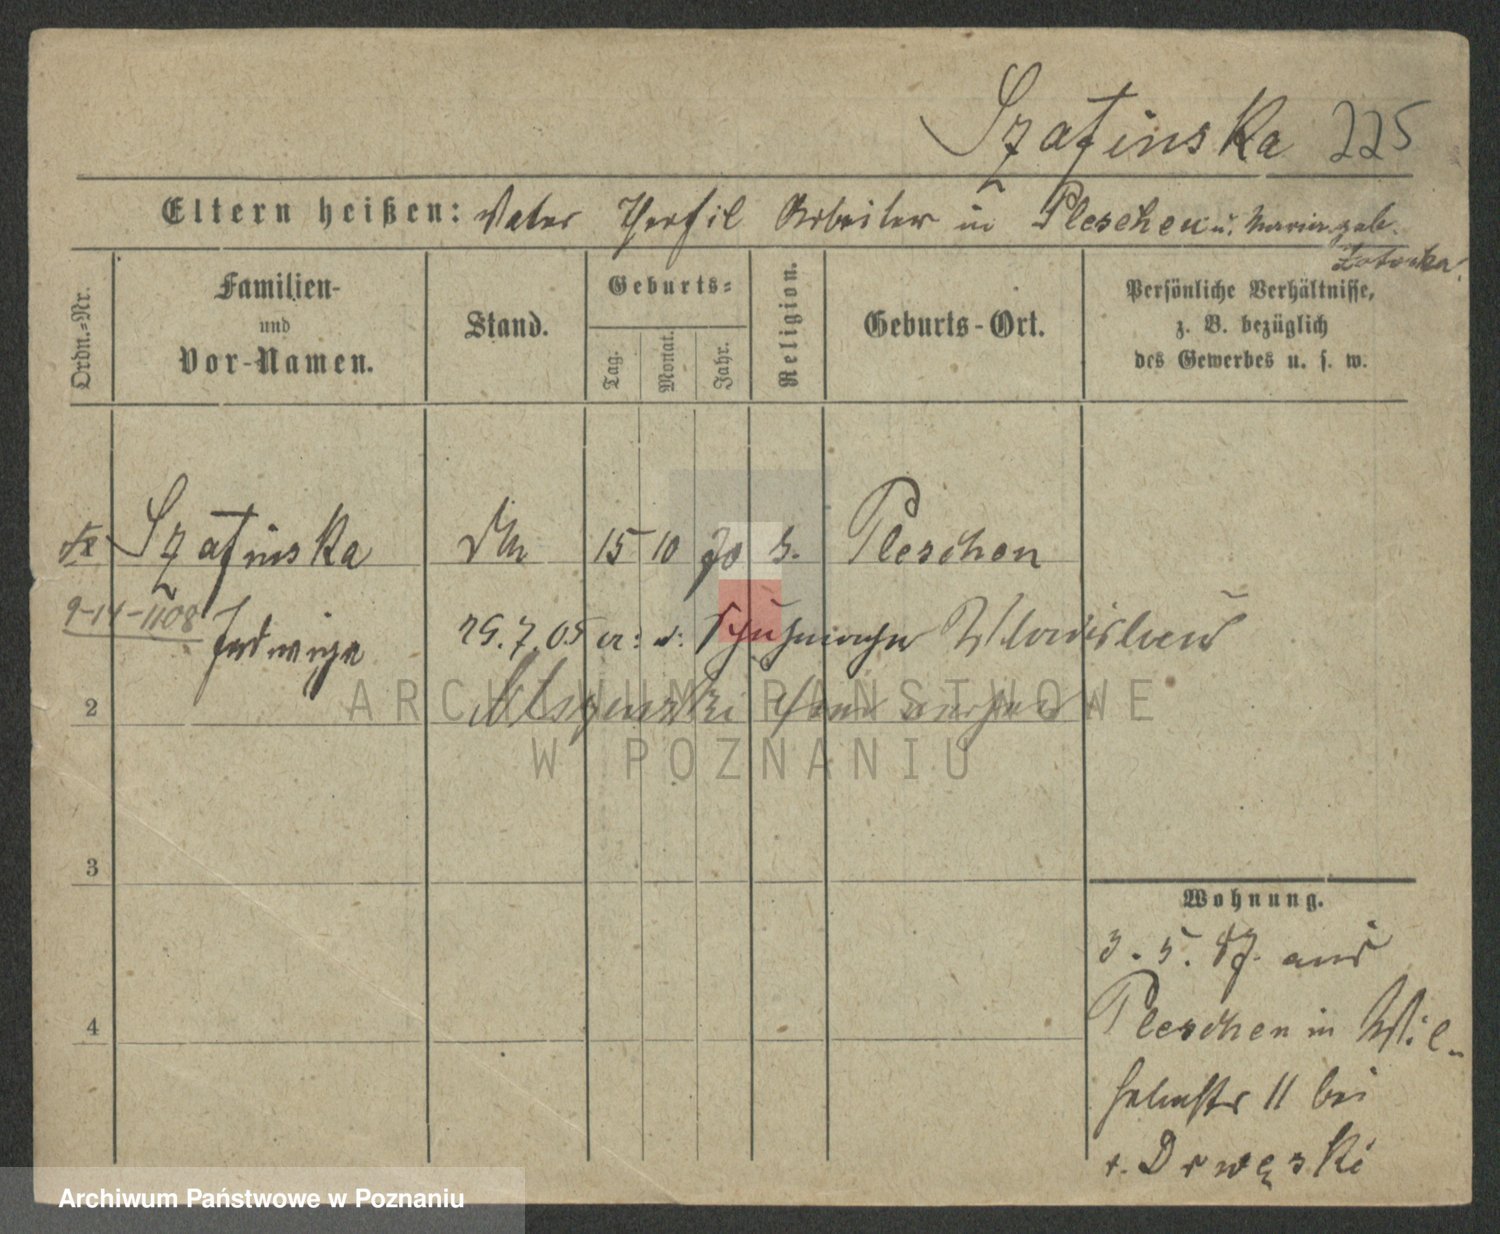 Szafinska 225
Eltern heißen: Vater Arbeiter in Pleschen u. Maria geb.
Ordn.-Nr.
Familien-
und
Vor-Namen.
Stand.
Geburts-
Tag.
Monat.
Jahr.
Religion.
Geburts-Ort.
Persönliche Verhältnisse,
z. B. bezüglich
des Gewerbes u. s. w.
Szafinska 15 10 70 Pleschen
9-14-1108 Jadwiga
7.05 Schuhmacher Wladislaus
2
3
4
Wohnung.
3. 5. 87. aus
Pleschen in Wil-
helmstr 11 bei
v. Drwęski
ARCHIWUM PAŃSTWOWE
W POZNANIU
Archiwum Państwowe w Poznaniu